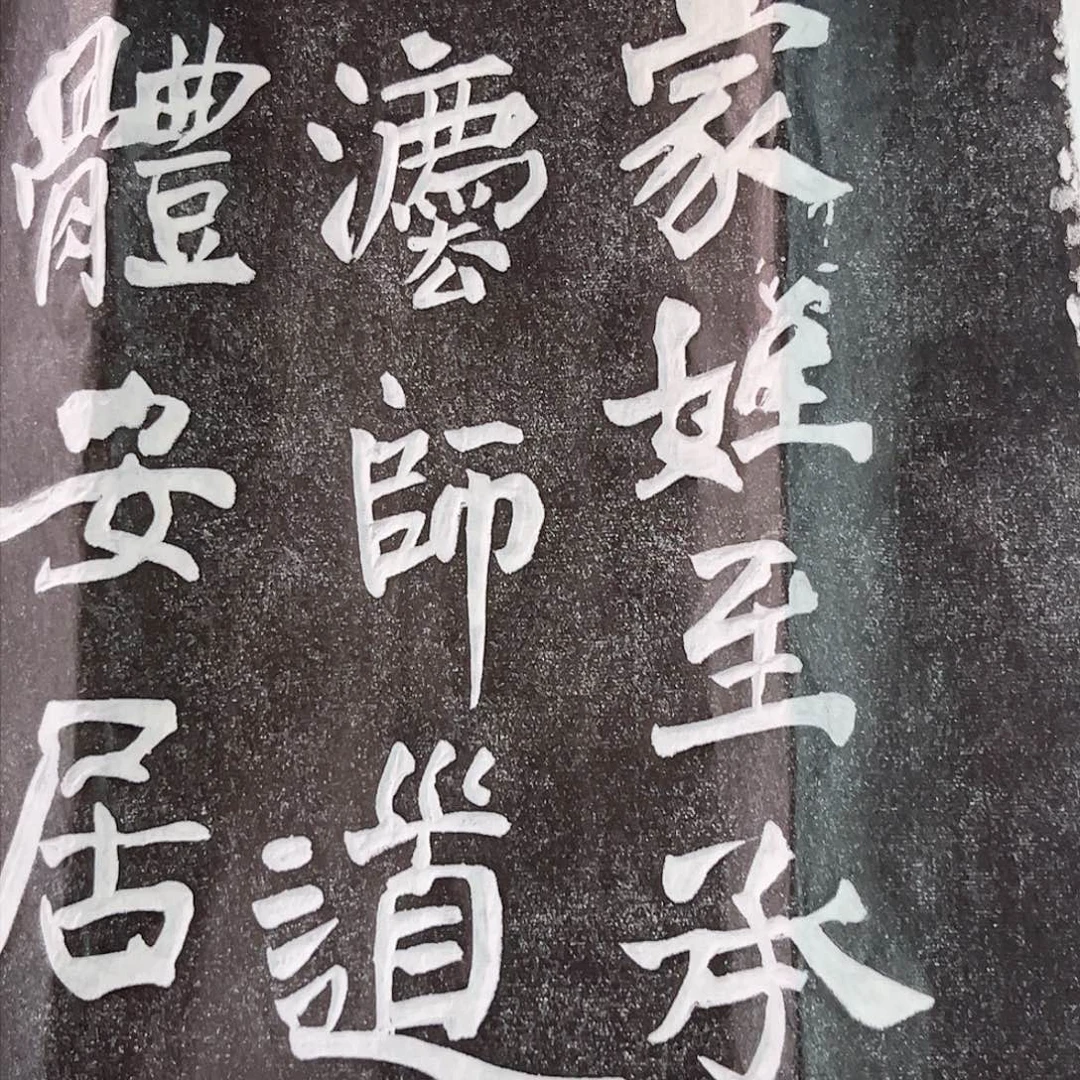 家姪至承
灋師道
體安居